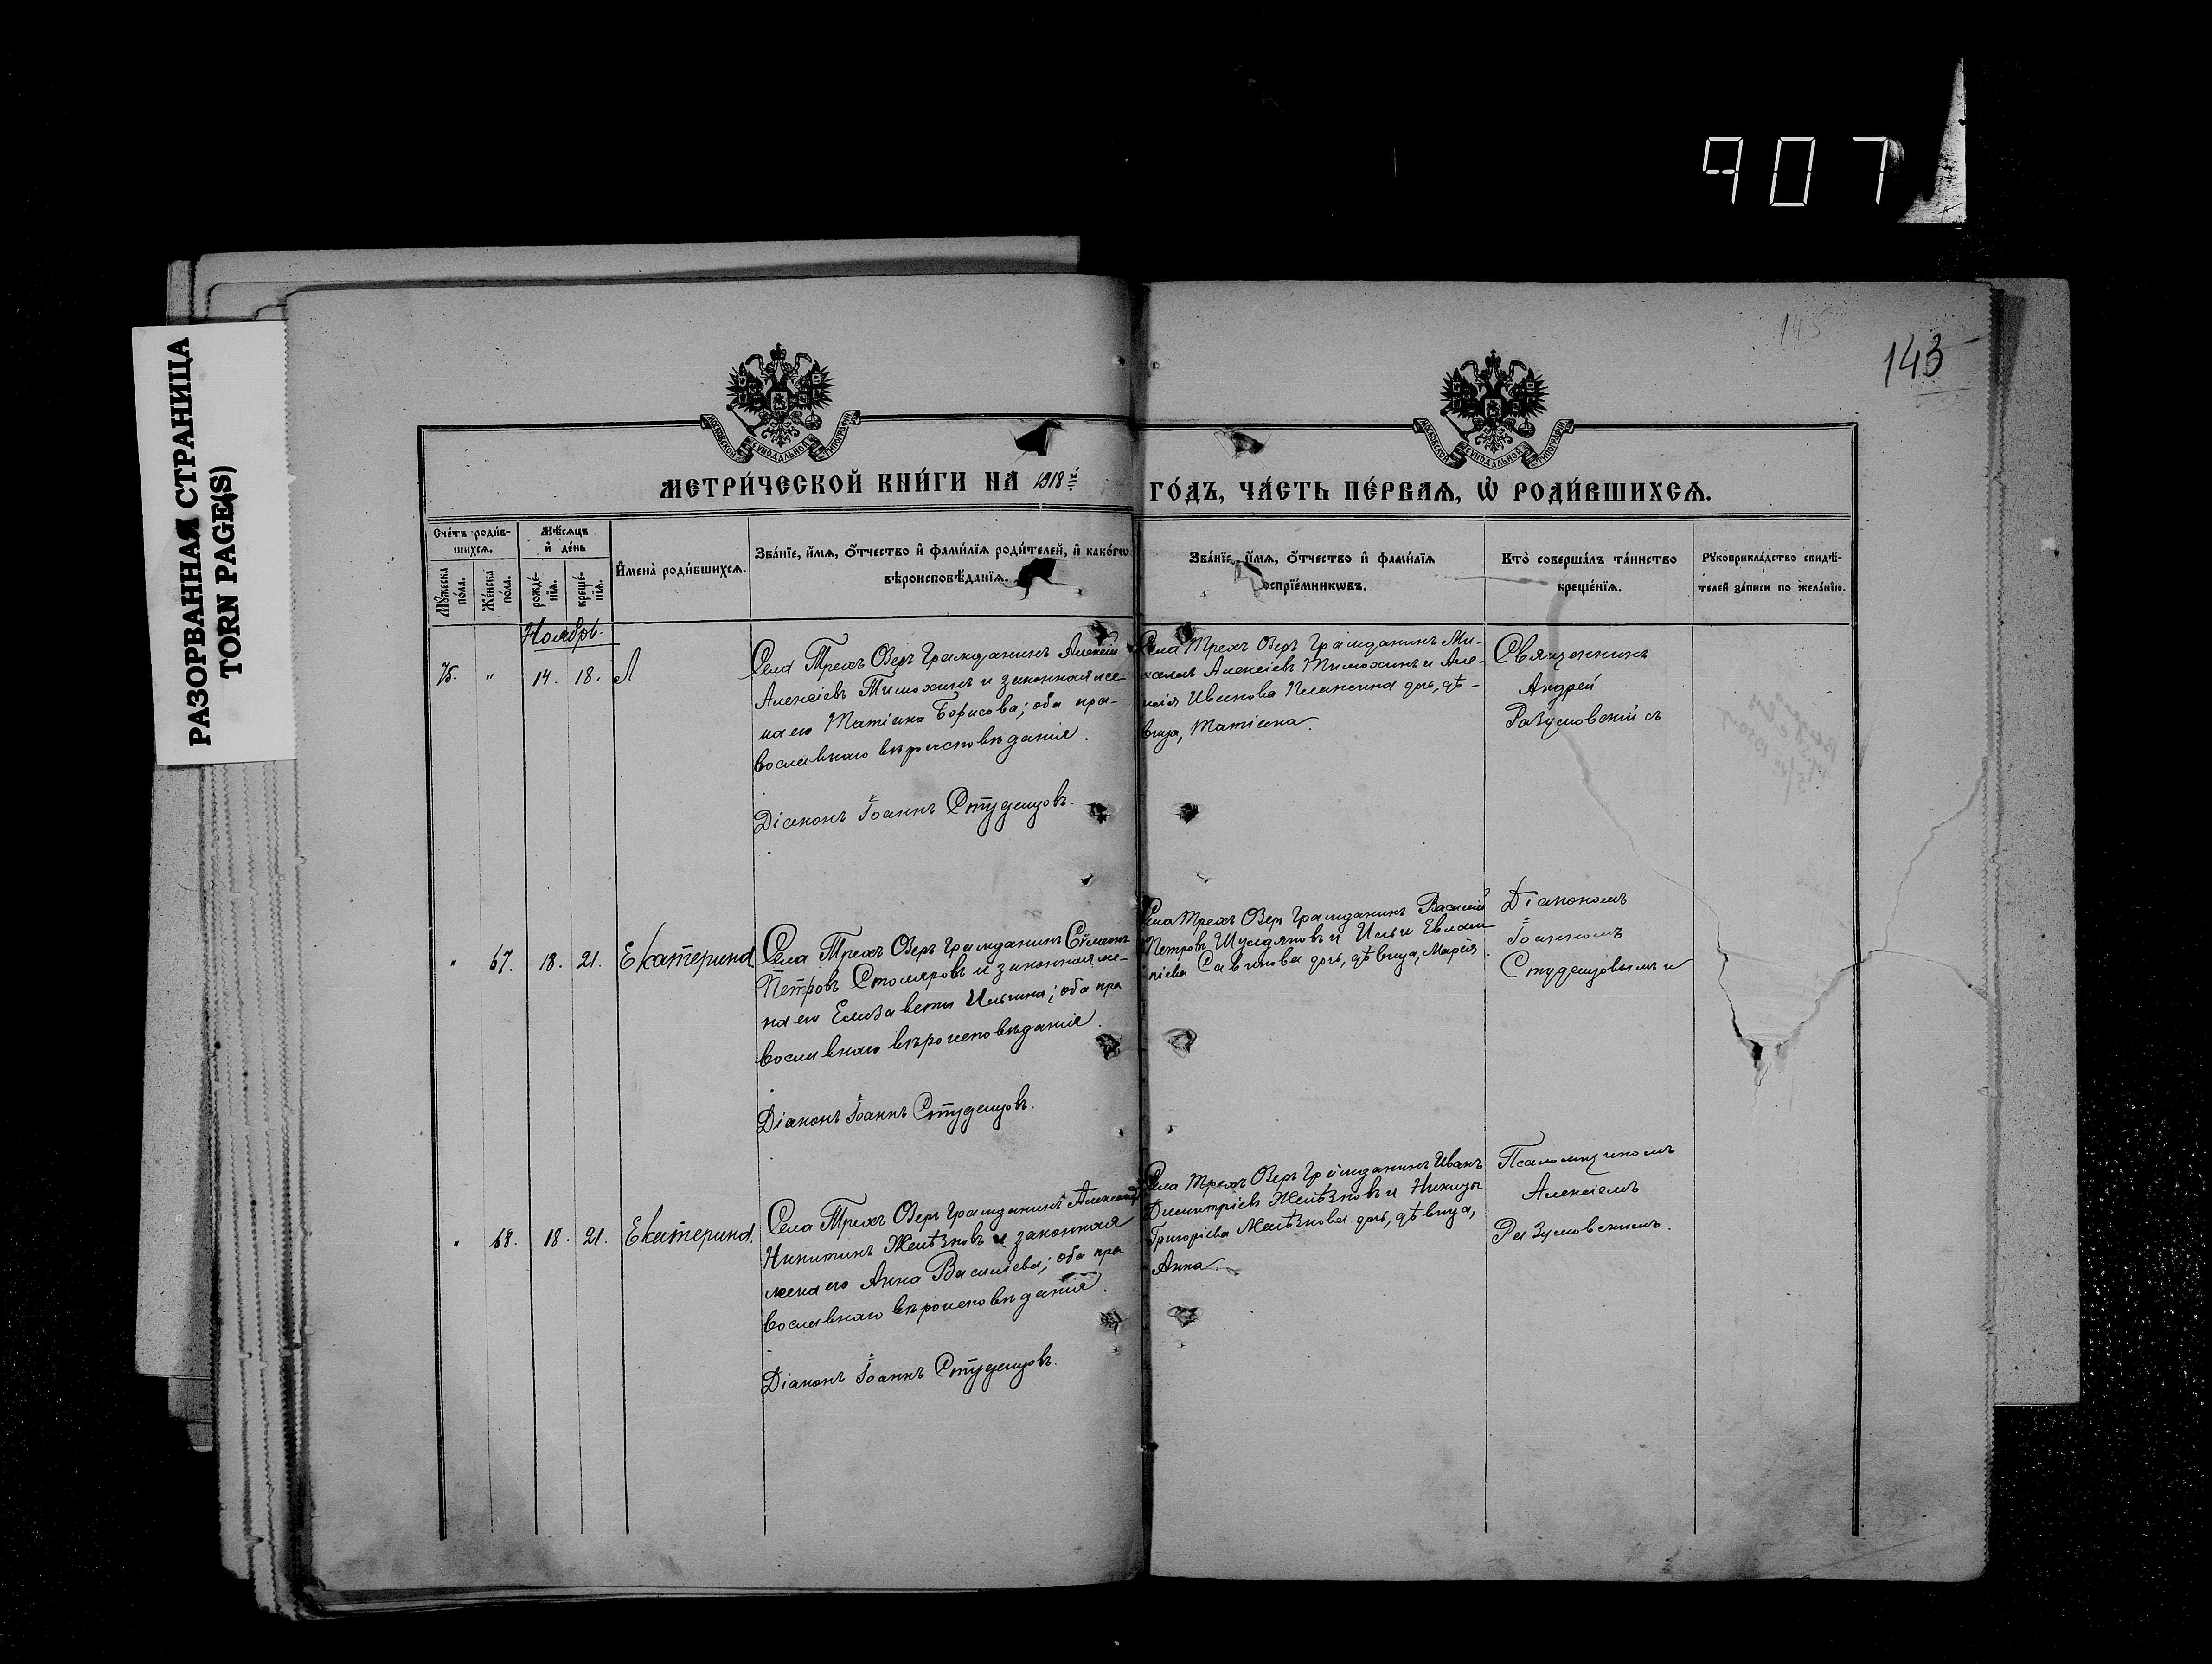 907
РАЗОРВАННАЯ СТРАНИЦА
TORN PAGE(S)
145
143
МОСКОВСКОЙ СѴНОДАЛЬНОЙ ТИПОГРАФІИ
МОСКОВСКОЙ СѴНОДАЛЬНОЙ ТИПОГРАФІИ
МЕТРИ́ЧЕСКОЙ КНИ́ГИ НА 1918й
ГО́ДЪ, ЧА́СТЬ ПЕ́РВАѦ, Ѡ҆ РОДИ́ВШИХСѦ.
Сче́тъ роди́в-
шихсѧ.
Мꙋ́жеска
по́ла.
Же́нска
по́ла.
Мѣ́сѧцъ
и҆ де́нь
рожде́-
нїѧ.
креще́-
нїѧ.
И҆мена̀ роди́вшихсѧ.
Зва́нїе, и҆́мѧ, ѻ҆́тчество и҆ фами́лїѧ роди́телей, и҆ како́гѡ
вѣроисповѣ́данїѧ.
Зва́нїе, и҆́мѧ, ѻ҆́тчество и҆ фами́лїѧ
воспрїе́мникѡвъ.
Кто̀ соверша́лъ та́инство
креще́нїѧ.
Рꙋкоприкла́дство свидѣ́-
телей за́писи по жела́нїю.
Ноябрь.
75. " 14. 18. Л
Села Трехъ Озеръ Гражданинъ Алексій
Алексіевъ Тимохинъ и законная же-
на его Татіана Борисова; оба пра-
вославнаго вѣроисповѣданія.
Діаконъ Іоаннъ Студенцовъ.
Села Трехъ Озеръ Гражданинъ Ми-
хаилъ Алексіевъ Тимохинъ и
Иванова дочь, дѣ-
вица, Татіана.
Священникъ
Андрей
Разумовскій съ
" 67. 18. 21. Екатерина
Села Трехъ Озеръ Гражданинъ Сѷмеонъ
Петровъ Столяровъ и законная же-
на его Елизавета Ильина; оба пра
вославнаго вѣроисповѣданія.
Діаконъ Іоаннъ Студенцовъ.
Села Трехъ Озеръ Гражданинъ Василій
Петровъ и Ильи Евлам
піева Савинова дочь, дѣвица, Марія.
Діакономъ
Іоанномъ
Студенцовымъ и
" 68. 18. 21. Екатерина.
Села Трехъ Озеръ Гражданинъ Александръ
Никитинъ Желѣзновъ и законная
жена его Анна Василіева; оба пра
вославнаго вѣроисповѣданія.
Діаконъ Іоаннъ Студенцовъ.
Села Трехъ Озеръ Гражданинъ Иванъ
Димитріевъ Желѣзновъ и Никиты
Григоріева Желѣзнова дочь, дѣвица,
Анна.
Псаломщикомъ
Алексіемъ
Разумовскимъ.